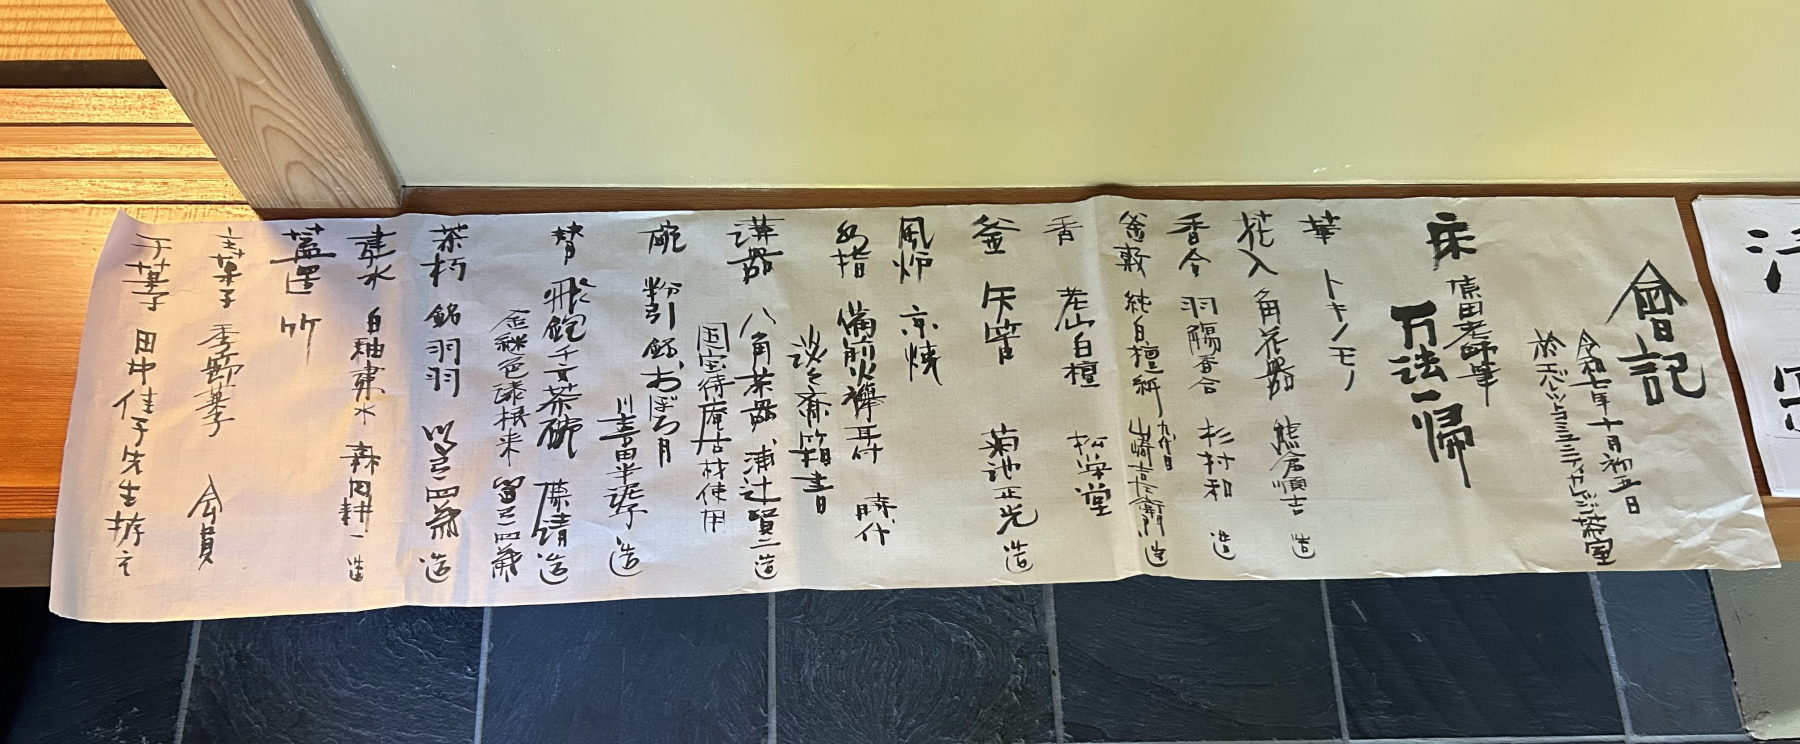 會記
令和七年十月初五日
於
茶室
床
老師筆
万法一帰
華 トキノモノ
花入 角花器 熊倉順吉 造
香合 羽觴香合 杉村和 造
釜敷 純白檀紙 九代目 山崎吉左衛門 造
香 老山白檀 松栄堂
釜 矢筈 菊池正光 造
風炉 京焼
水指 備前火襷耳付 時代
淡々斎箱書
薄器 八角茶器 浦辻賢二 造
国宝待庵古材使用
碗 粉引 銘 おぼろ月
川喜田半泥子 造
替 飛鉋千文茶碗 造
茶杓 銘 羽羽 造
建水 白釉建水 森岡耕一 造
蓋置 竹
主菓子 季節菓子 会員
干菓子 田中佳子先生